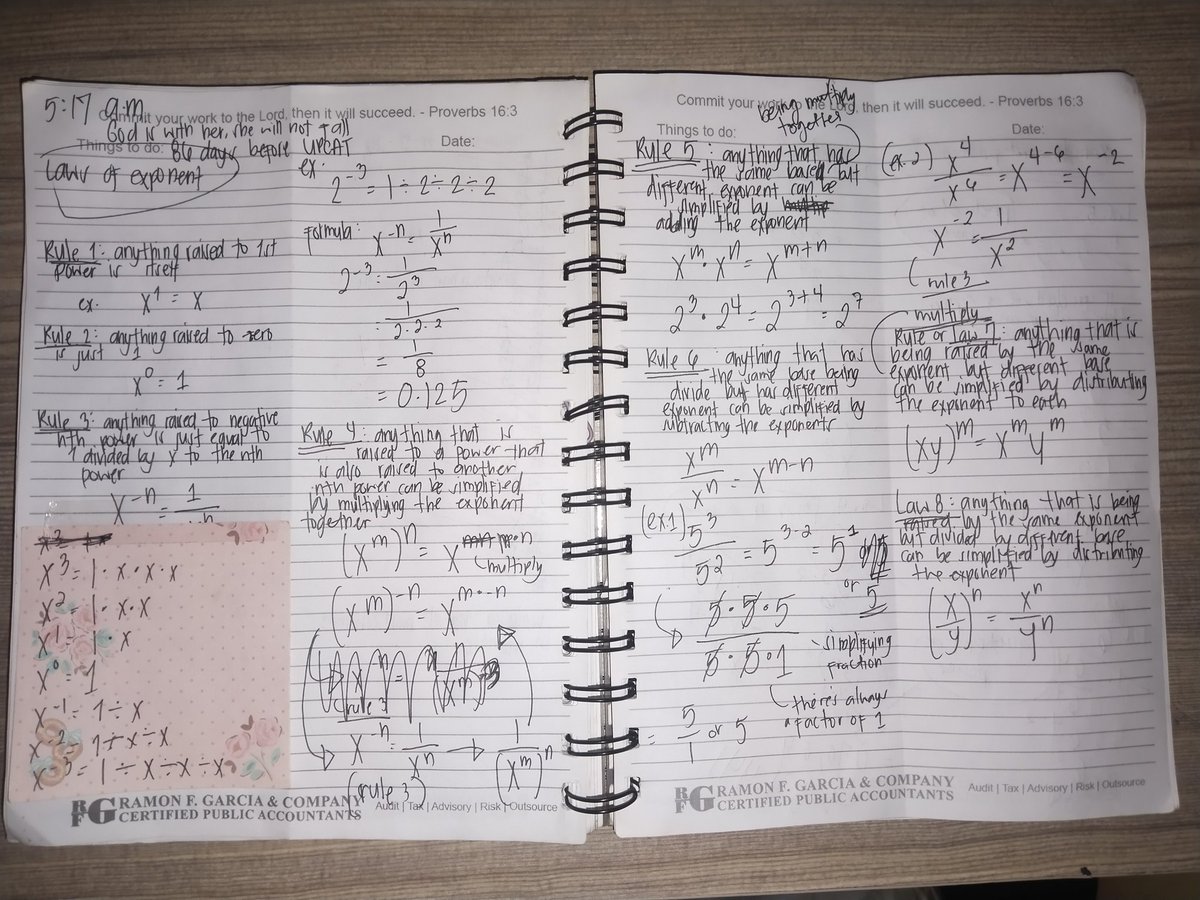 5:17 a.m
Commit your work to the Lord, then it will succeed. - Proverbs 16:3
God is with her, she will not fall
Things to do: 86 days before UPCAT
Date:
Laws of exponent
Rule 1: anything raised to 1st
power is itself
ex. x¹ = x
Rule 2: anything raised to zero
is just 1
x⁰ = 1
Rule 3: anything raised to negative
nth power is just equal to
1 divided by x to the nth
power
x⁻ⁿ = 1/xⁿ
x³ = 1·x·x·x
x² = 1·x·x
x¹ = 1·x
x⁰ = 1
x⁻¹ = 1÷x
x⁻² = 1÷x÷x
x⁻³ = 1÷x÷x÷x
ex:
2⁻³ = 1÷2÷2÷2
Formula: x⁻ⁿ = 1/xⁿ
2⁻³ = 1/2³
= 1/2·2·2
= 1/8
= 0.125
Rule 4: anything that is
raised to a power that
is also raised to another
nth power can be simplified
by multiplying the exponent
together
(xᵐ)ⁿ = x ᵐ·ⁿ
multiply
(xᵐ)⁻ⁿ = xᵐ·⁻ⁿ
rule 3
x⁻ⁿ = 1/xⁿ → 1/(xᵐ)ⁿ
(rule 3)
RFG RAMON F. GARCIA & COMPANY
CERTIFIED PUBLIC ACCOUNTANTS
Audit | Tax | Advisory | Risk | Outsource
Commit your work to the Lord, then it will succeed. - Proverbs 16:3
being multiply
together
Things to do:
Date:
Rule 5: anything that has
the same based but
different exponent can be
simplified by
adding the exponent
xᵐ·xⁿ = xᵐ⁺ⁿ
2³·2⁴ = 2³⁺⁴ = 2⁷
Rule 6: anything that has
the same base being
divide but has different
exponent can be simplified by
subtracting the exponents
xᵐ/xⁿ = xᵐ⁻ⁿ
(ex.1) 5³/5² = 5³⁻² = 5¹
or
5
5·5·5/5·5·1
simplifying
fraction
there's always
a factor of 1
= 5/1 or 5
(ex.2) x⁴/x⁶ = x⁴⁻⁶ = x⁻²
x⁻² = 1/x²
rule 3
multiply
Rule or Law 7: anything that is
being raised by the same
exponent but different base
can be simplified by distributing
the exponent to each
(xy)ᵐ = xᵐyᵐ
Law 8: anything that is being
raised by the same exponent
but divided by different base
can be simplified by distributing
the exponent
(x/y)ⁿ = xⁿ/yⁿ
RFG RAMON F. GARCIA & COMPANY
CERTIFIED PUBLIC ACCOUNTANTS
Audit | Tax | Advisory | Risk | Outsource